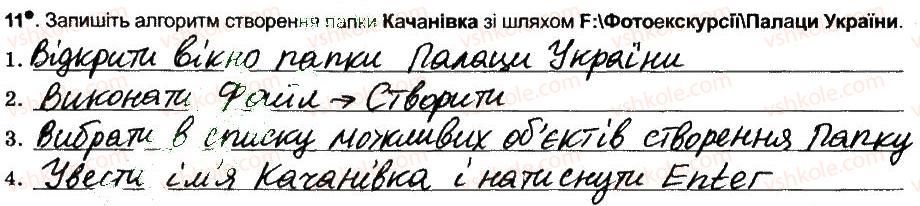 11•. Запишіть алгоритм створення папки Качанівка зі шляхом F:\Фотоекскурсії\Палаци України.
1. Відкрити вікно папки Палаци України
2. Виконати Файл → Створити
3. Вибрати в списку можливих об'єктів створення Папку
4. Увести ім'я Качанівка і натиснути Enter